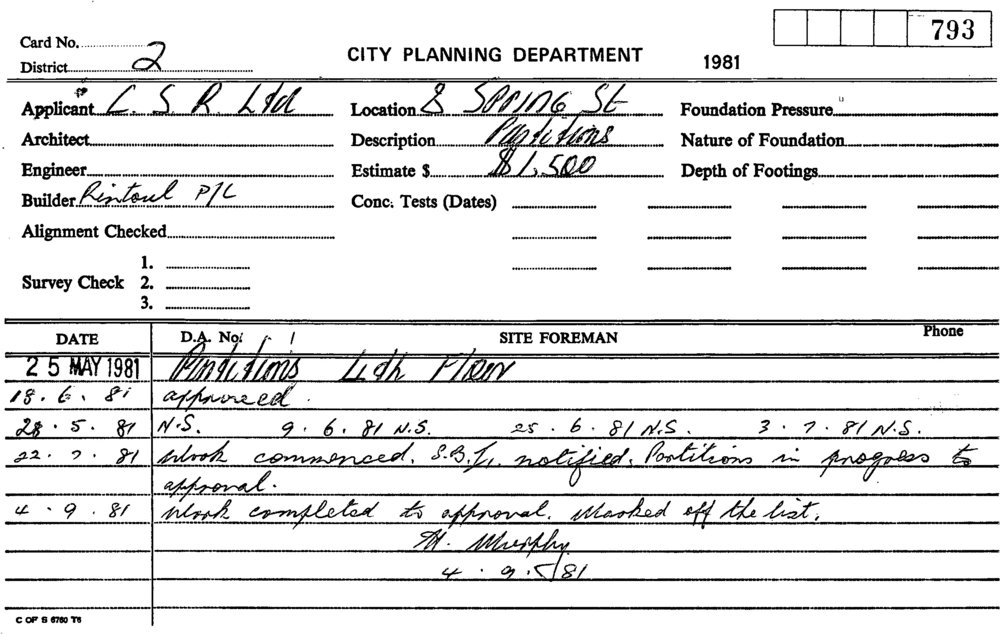 793
Card No.
District 2
CITY PLANNING DEPARTMENT 1981
Applicant C. S. R. Ltd Location 8 Spring St Foundation Pressure
Architect Description Partitions Nature of Foundation
Engineer Estimate $ $1,500 Depth of Footings
Builder Rintoul P/L Conc. Tests (Dates)
Alignment Checked
1.
Survey Check 2.
3.
DATE D.A. No. SITE FOREMAN Phone
25 MAY 1981 Partitions 4th Floor
18. 6. 81 approved.
28. 5. 81 N.S. 9. 6. 81 N.S. 25. 6. 81 N.S. 3. 7. 81 N.S.
22. 7. 81 Work commenced. notified. Partitions in progress to
approval.
4. 9. 81 Work completed to approval. Marked off the list.
Murphy
4. 9. 81
C OF S 6760 T6